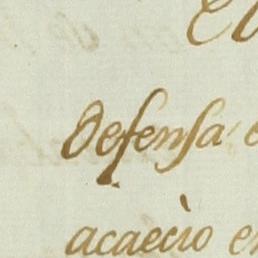 El
Defensa
acaecio en